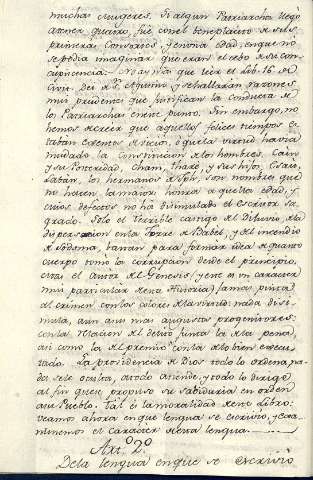 muchas mugeres. Si algun Patriarcha llegó
atener quatro, fué con el beneplacito de sus
primeras Consortes, y en una edad, en que no
se podia imaginar que eran el cebo de su con-
cupiscencia. No ay más que leer el Lib. 16 de
Civit. Dei de S. Agustin y se hallarán razones
mui prudentes que justifican la conducta de
los Patriarchas en este punto. Sin embargo, no
hemos de creer que aquellos felices tiempos es-
taban exentos de vicios, ó que la virtud havia
mudado la constitucion de los hombres. Cain
y su Posteridad, Cham, Thare, y sus hijos, Esaú,
Labán, los hermanos de Joseph, son nombres que
no hacen la maior honra a aquella edad, y
cuios defectos no ha disimulado el Escritor Sa-
grado. Solo el terrible castigo del Diluvio, de la
dispersion en la Torre de Babel, y del incendio
de Sodoma, bastan para formar idea de quanto
cuerpo tomó la corrupcion desde el principio,
Mas el Autor del Genesis (y este es un caracter
mui particular de esta Historia) jamas pinta
el crimen con los colores de la virtud: nada disi-
mula, aun a sus mas augustos progenitores:
con la relacion del delito junta la de la pena,
asi como la del premio con la del bien execu-
tado. La providencia de Dios todo lo ordena, na-
da se le oculta, a todo atiende, y todo lo dirige
al fin que se propuso su Sabiduria en orden
a su Pueblo. Tal es la moralidad de este Libro:
veamos ahora en que lengua se escrivio, y exa-
minemos el caracter de esta lengua
Art. 2.º
De la lengua en que se escrivió